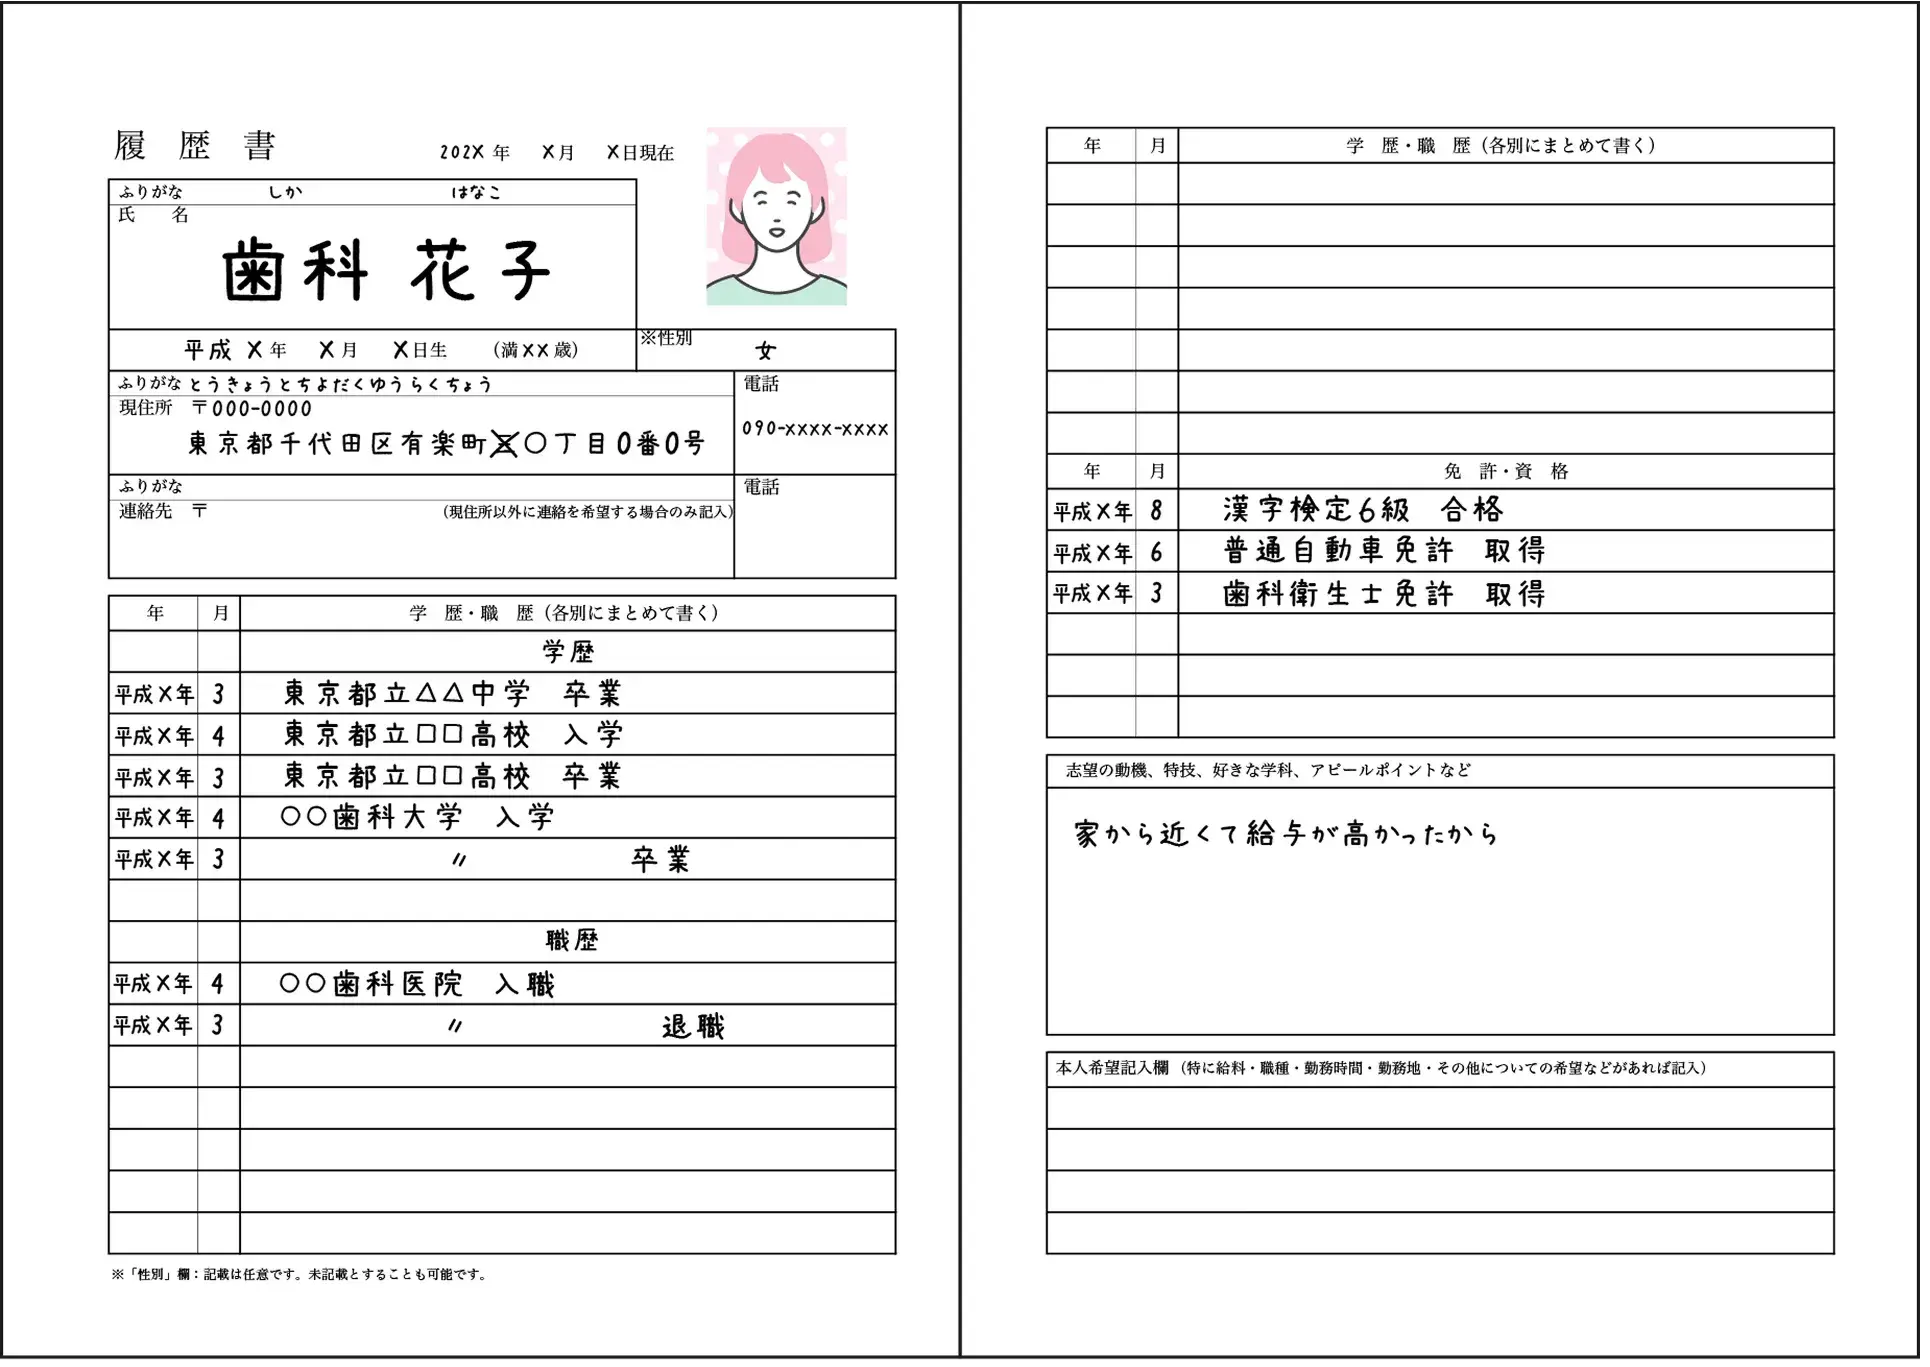 履 歴 書
202X 年 X月 X日現在
ふりがな しか はなこ
氏 名
歯科 花子
平成 X 年 X 月 X日生 （満XX歳）
※性別
女
ふりがな とうきょうとちよだくゆうらくちょう
現住所 〒000-0000
東京都千代田区有楽町〇丁目0番0号
電話
090-xxxx-xxxx
ふりがな
連絡先 〒
（現住所以外に連絡を希望する場合のみ記入）
電話
年 月 学 歴・職 歴（各別にまとめて書く）
学歴
平成X年 3 東京都立△△中学 卒業
平成X年 4 東京都立□□高校 入学
平成X年 3 東京都立□□高校 卒業
平成X年 4 〇〇歯科大学 入学
平成X年 3 〃 卒業
職歴
平成X年 4 〇〇歯科医院 入職
平成X年 3 〃 退職
※「性別」欄：記載は任意です。未記載とすることも可能です。
年 月 学 歴・職 歴（各別にまとめて書く）
年 月 免 許・資 格
平成X年 8 漢字検定6級 合格
平成X年 6 普通自動車免許 取得
平成X年 3 歯科衛生士免許 取得
志望の動機、特技、好きな学科、アピールポイントなど
家から近くて給与が高かったから
本人希望記入欄（特に給料・職種・勤務時間・勤務地・その他についての希望などがあれば記入）